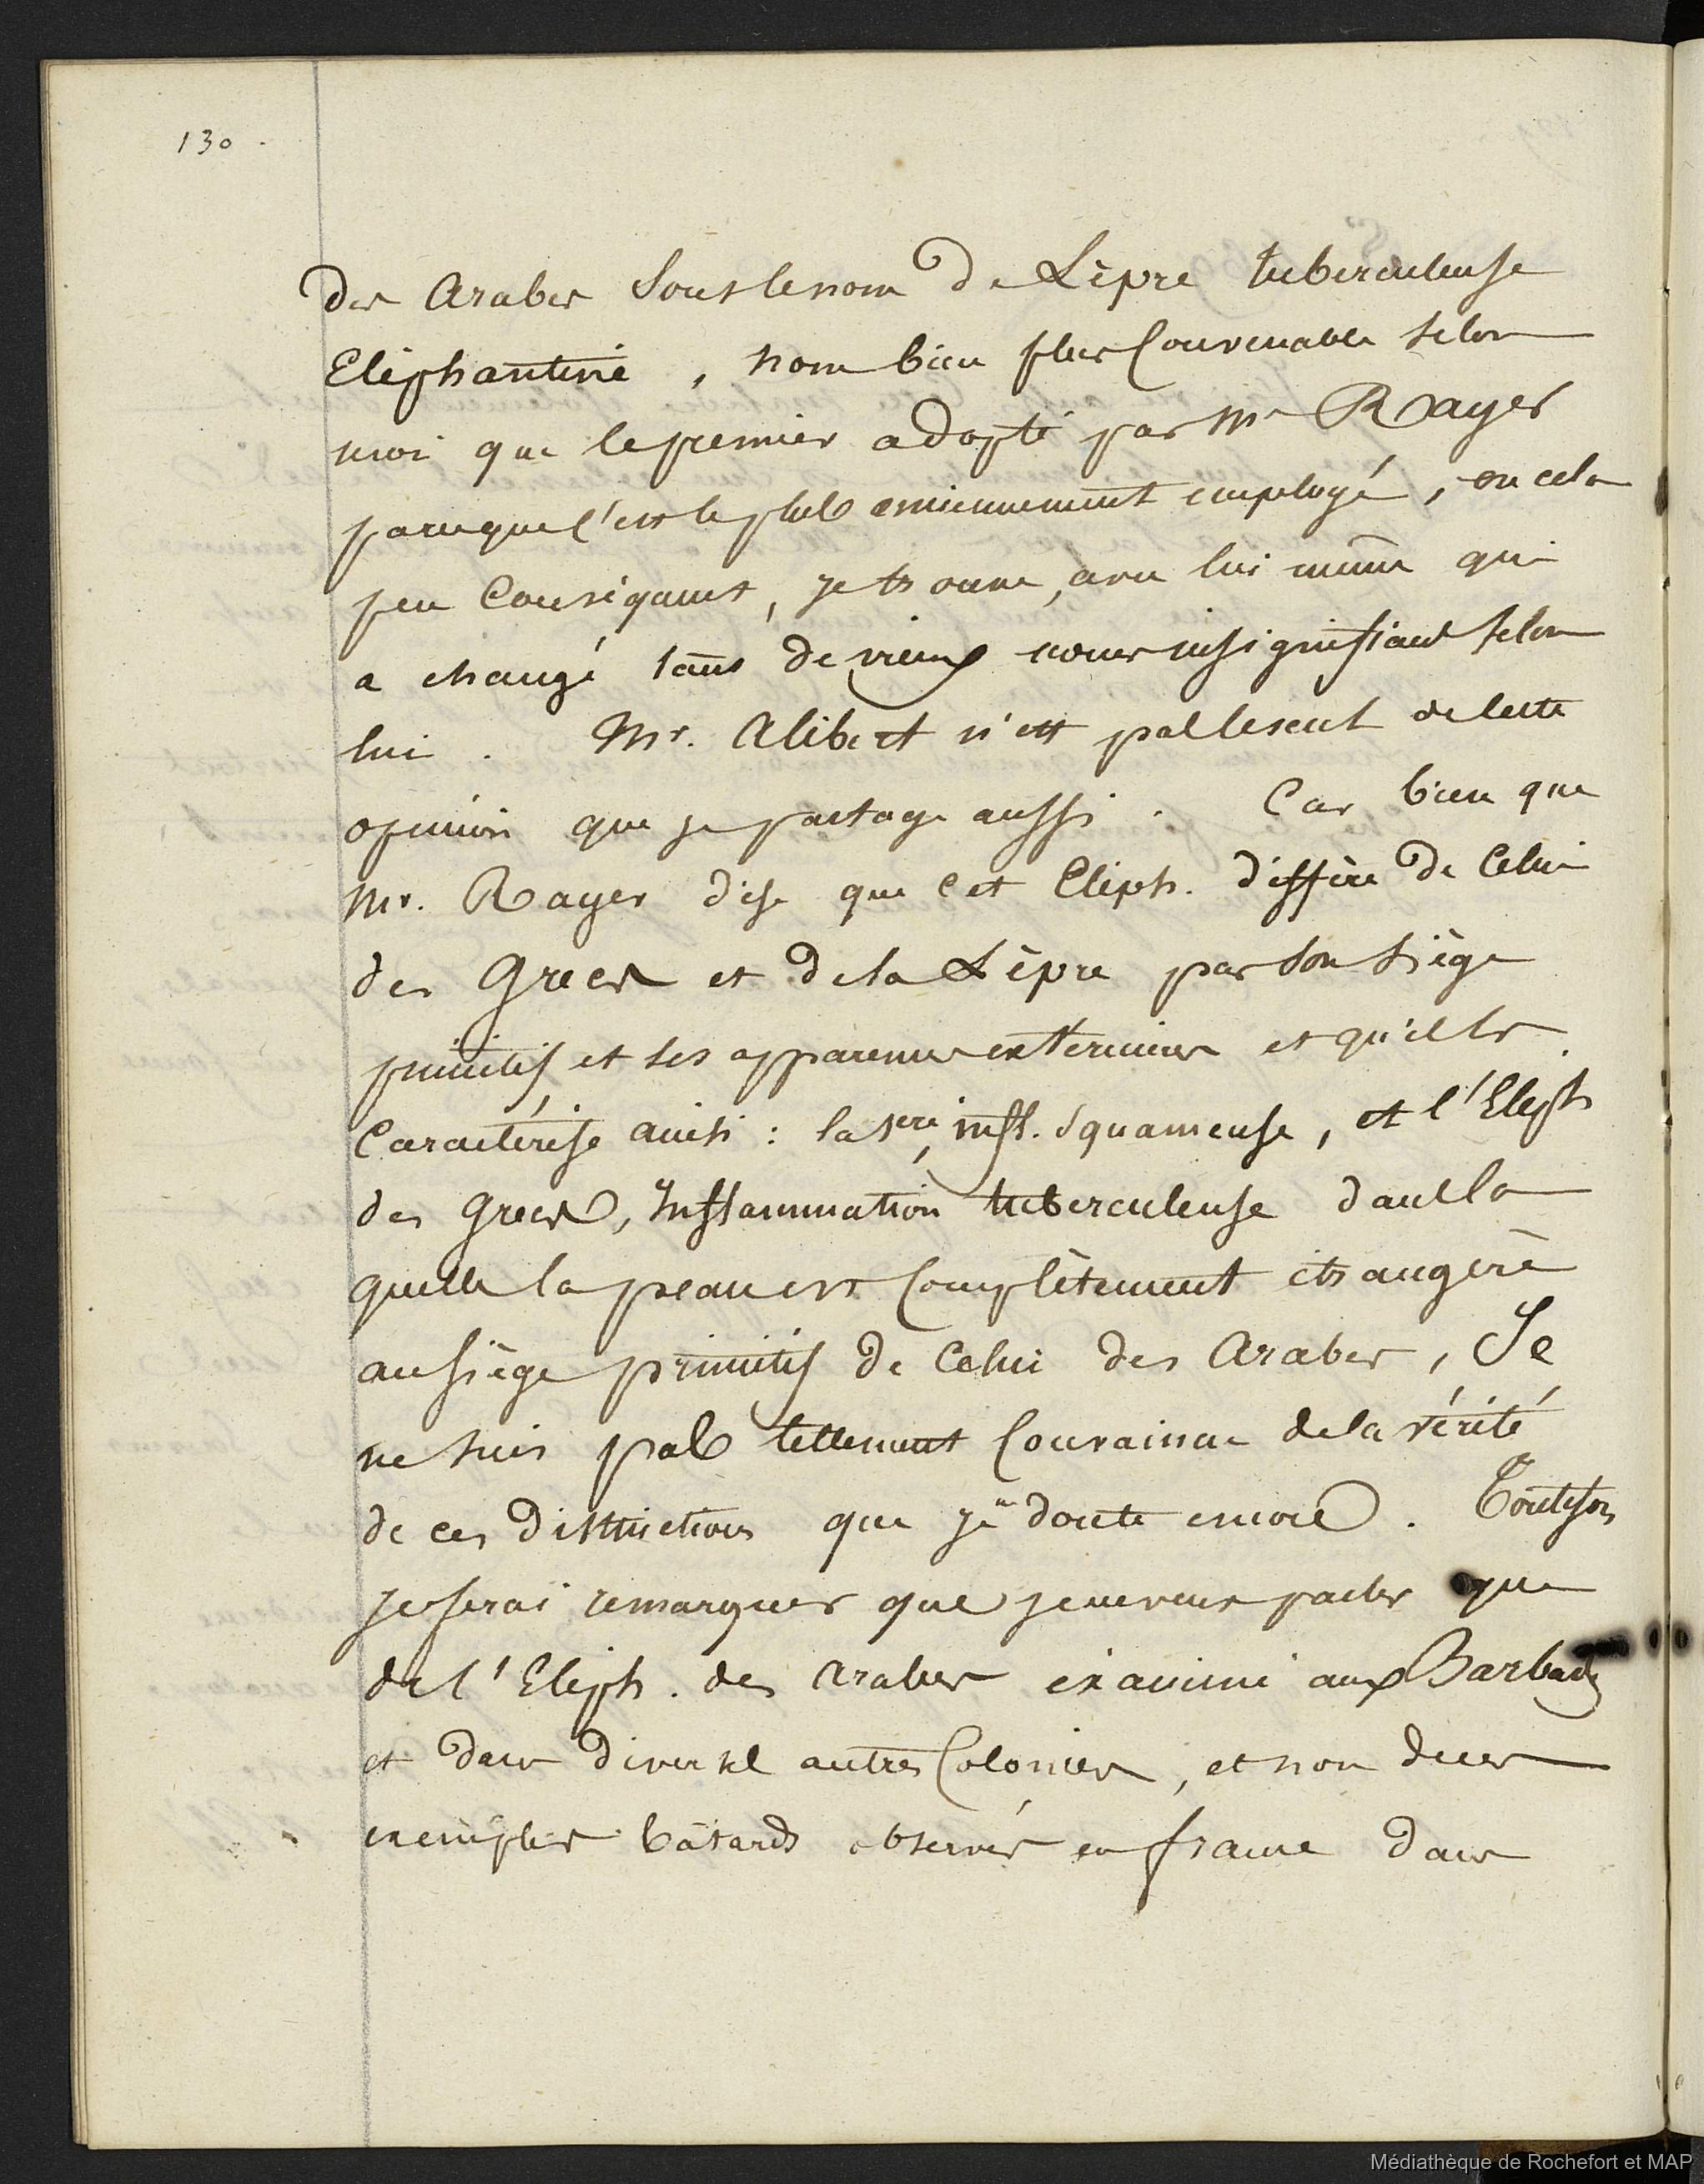 130.
des Arabes sous le nom de Lèpre tuberculeuse
Eléphantine, nom bien plus Convenable selon
moi que le premier adopté par Mr Rayer
parceque c'est le plus anciennement employé, en cela
peu Conséquent, je trouve, avec lui même qui
a changé tant de vieux noms insignifiants selon
lui. Mr. Alibert n'est pas le seul de cette
opinion que je partage aussi. Car bien que
Mr. Rayer dise que cet Eléph. diffère de Celui
des Grecs et de la Lèpre par son siège
primitif et ses apparences exterieures et qu'il les
Caractérise ainsi: la 1ère, infl. squameuse, et l'Eléph
des Grecs, Inflammation tuberculeuse dans la
quelle la peau est Complètement étrangère
au siège primitif de Celui des Arabes, Je
ne suis pas tellement Convaincu de la vérité
de ces distinctions que je n'en doute encore. Toutefois
je ferai remarquer que je ne veux parler que
de l'Eléph. des Arabes examiné aux Barbades
et dans diverses autres Colonies, et non des
exemples bâtards observés en france dans
Médiathèque de Rochefort et MAP